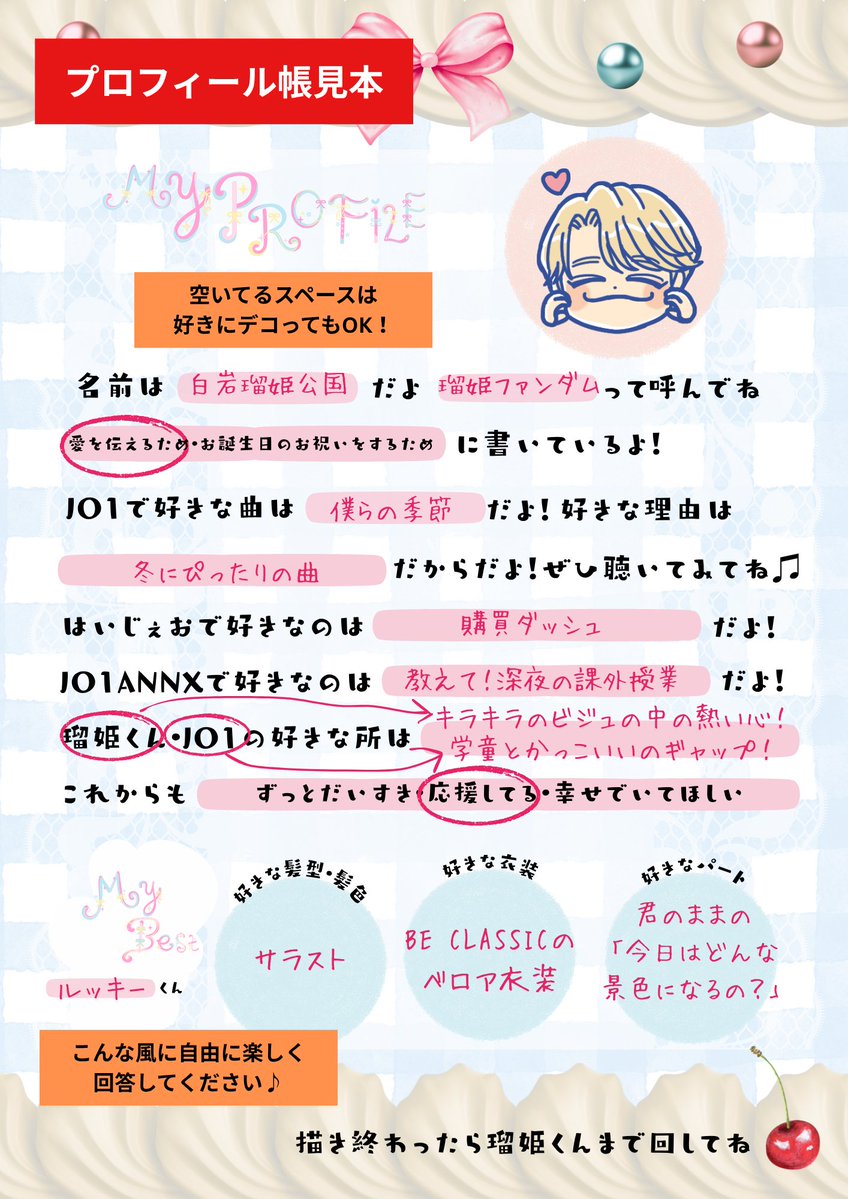 プロフィール帳見本
MY PROFILE
空いてるスペースは
好きにデコってもOK！
名前は 白岩瑠姫公国 だよ 瑠姫ファンダムって呼んでね
愛を伝えるため・お誕生日のお祝いをするため に書いているよ！
JO1で好きな曲は 僕らの季節 だよ！好きな理由は
冬にぴったりの曲 だからだよ！ぜひ聴いてみてね♫
はいじぇおで好きなのは 購買ダッシュ だよ！
JO1ANNXで好きなのは 教えて！深夜の課外授業 だよ！
キラキラのビジュの中の熱い心！
瑠姫くん・JO1の好きな所は 学童とかっこいいのギャップ！
これからも ずっとだいすき・応援してる・幸せでいてほしい
My Best
ルッキーくん
好きな髪型・髪色
サラスト
好きな衣装
BE CLASSICの
ベロア衣装
好きなパート
君のままの
「今日はどんな
景色になるの？」
こんな風に自由に楽しく
回答してください♪
描き終わったら瑠姫くんまで回してね